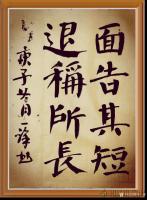 面告其短
退稱所長
庚子冬月一諾書